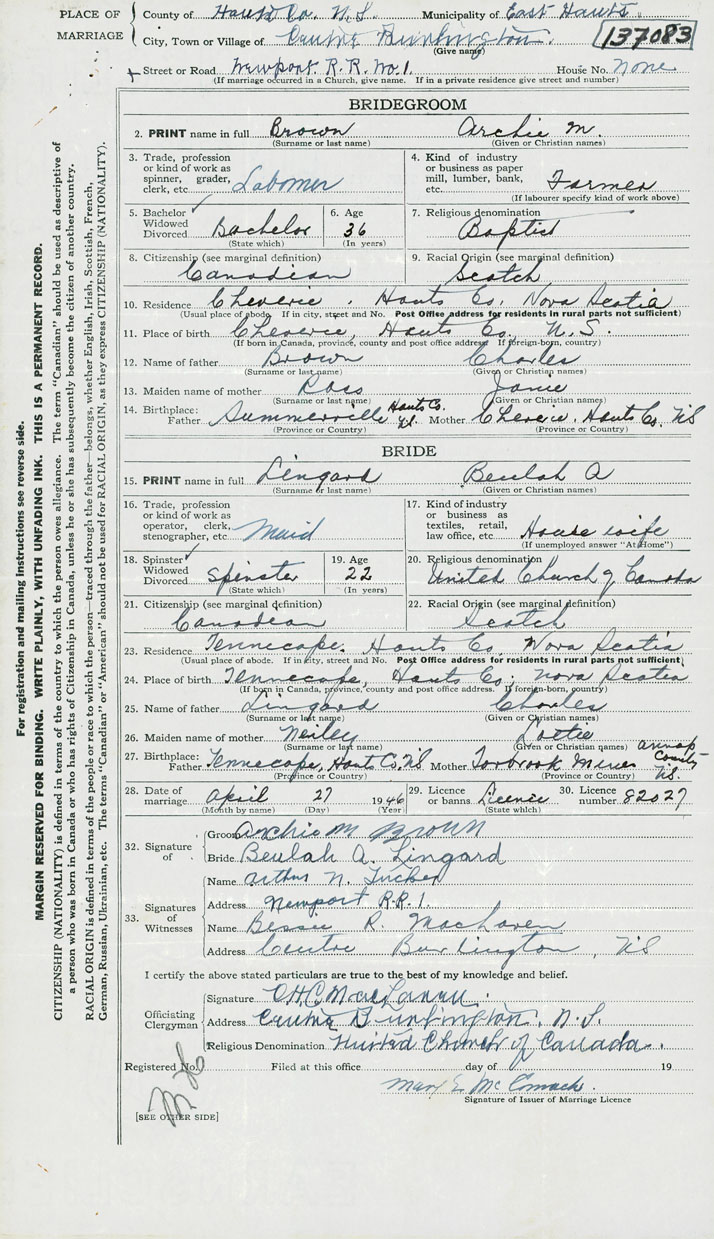 PLACE OF MARRIAGE
County of Hants Co. N.S. Municipality of East Hants.
City, Town or Village of Centre Burlington.
(Give name)
137083
Street or Road Newport R.R. No. 1. House No. None
(If marriage occurred in a Church, give name. If in a private residence give street and number)
BRIDEGROOM
2. PRINT name in full Brown Archie M.
(Surname or last name) (Given or Christian names)
3. Trade, profession or kind of work as spinner, grader, clerk, etc. Labomer
4. Kind of industry or business as paper mill, lumber, bank, etc. Farmer
(If labourer specify kind of work above)
5. Bachelor Widowed Divorced Bachelor
(State which)
6. Age 36
(In years)
7. Religious denomination
Baptist
8. Citizenship (see marginal definition)
Canadian
9. Racial Origin (see marginal definition)
Scotch
10. Residence Cheverie, Hants Co. Nova Scotia
(Usual place of abode. If in city, street and No. Post Office address for residents in rural parts not sufficient)
11. Place of birth Cheverie, Hants Co. N.S.
(If born in Canada, province, county and post office address. If foreign-born, country)
12. Name of father Brown Charles
(Surname or last name) (Given or Christian names)
13. Maiden name of mother Ross Janie
(Surname or last name) (Given or Christian names)
14. Birthplace: Father Summerville Hants Co. N.S. Mother Cheverie, Hants Co. N.S
(Province or Country) (Province or Country)
BRIDE
15. PRINT name in full Lingard Beulah A
(Surname or last name) (Given or Christian names)
16. Trade, profession or kind of work as operator, clerk, stenographer, etc. Maid
17. Kind of industry or business as textiles, retail, law office, etc. House wife
(If unemployed answer "At Home")
18. Spinster Widowed Divorced Spinster
(State which)
19. Age 22
(In years)
20. Religious denomination
United Church of Canada
21. Citizenship (see marginal definition)
Canadian
22. Racial Origin (see marginal definition)
Scotch
23. Residence Tennecape, Hants Co. Nova Scotia
(Usual place of abode. If in city, street and No. Post Office address for residents in rural parts not sufficient)
24. Place of birth Tennecape, Hants Co; Nova Scotia
(If born in Canada, province, county and post office address. If foreign-born, country)
25. Name of father Lingard Charles
(Surname or last name) (Given or Christian names)
26. Maiden name of mother Neiley
(Surname or last name) (Given or Christian names)
27. Birthplace: Father Tennecape, Hants Co. N.S Mother Torbrook Mines Annap County N.S.
(Province or Country) (Province or Country)
28. Date of marriage April 27 1946
(Month by name) (Day) (Year)
29. Licence or banns. Licence
30. Licence number 82027
32. Signature of
Groom Archie M Brown
Bride Beulah A. Lingard
33. Signatures of Witnesses
Name Arthur N. Tucker
Address Newport R.R.1.
Name Bessie R. MacLaren
Address Centre Burlington, N.S
I certify the above stated particulars are true to the best of my knowledge and belief.
Officiating Clergyman
Signature MacLaren.
Address Centre Burlington, N.S.
Religious Denomination United Church of Canada.
Registered No. Filed at this office day of 19
Mary E. McComack.
Signature of Issuer of Marriage Licence
[SEE OTHER SIDE]
For registration and mailing instructions see reverse side.
MARGIN RESERVED FOR BINDING. WRITE PLAINLY, WITH UNFADING INK. THIS IS A PERMANENT RECORD.
CITIZENSHIP (NATIONALITY) is defined in terms of the country to which the person owes allegiance. The term "Canadian" should be used as descriptive of
a person who was born in Canada or who has rights of Citizenship in Canada, unless he or she has subsequently become the citizen of another country.
RACIAL ORIGIN is defined in terms of the people or race to which the person—traced through the father—belongs, whether English, Irish, Scottish, French,
German, Russian, Ukrainian, etc. The terms "Canadian" or "American" should not be used for RACIAL ORIGIN, as they express CITIZENSHIP (NATIONALITY).